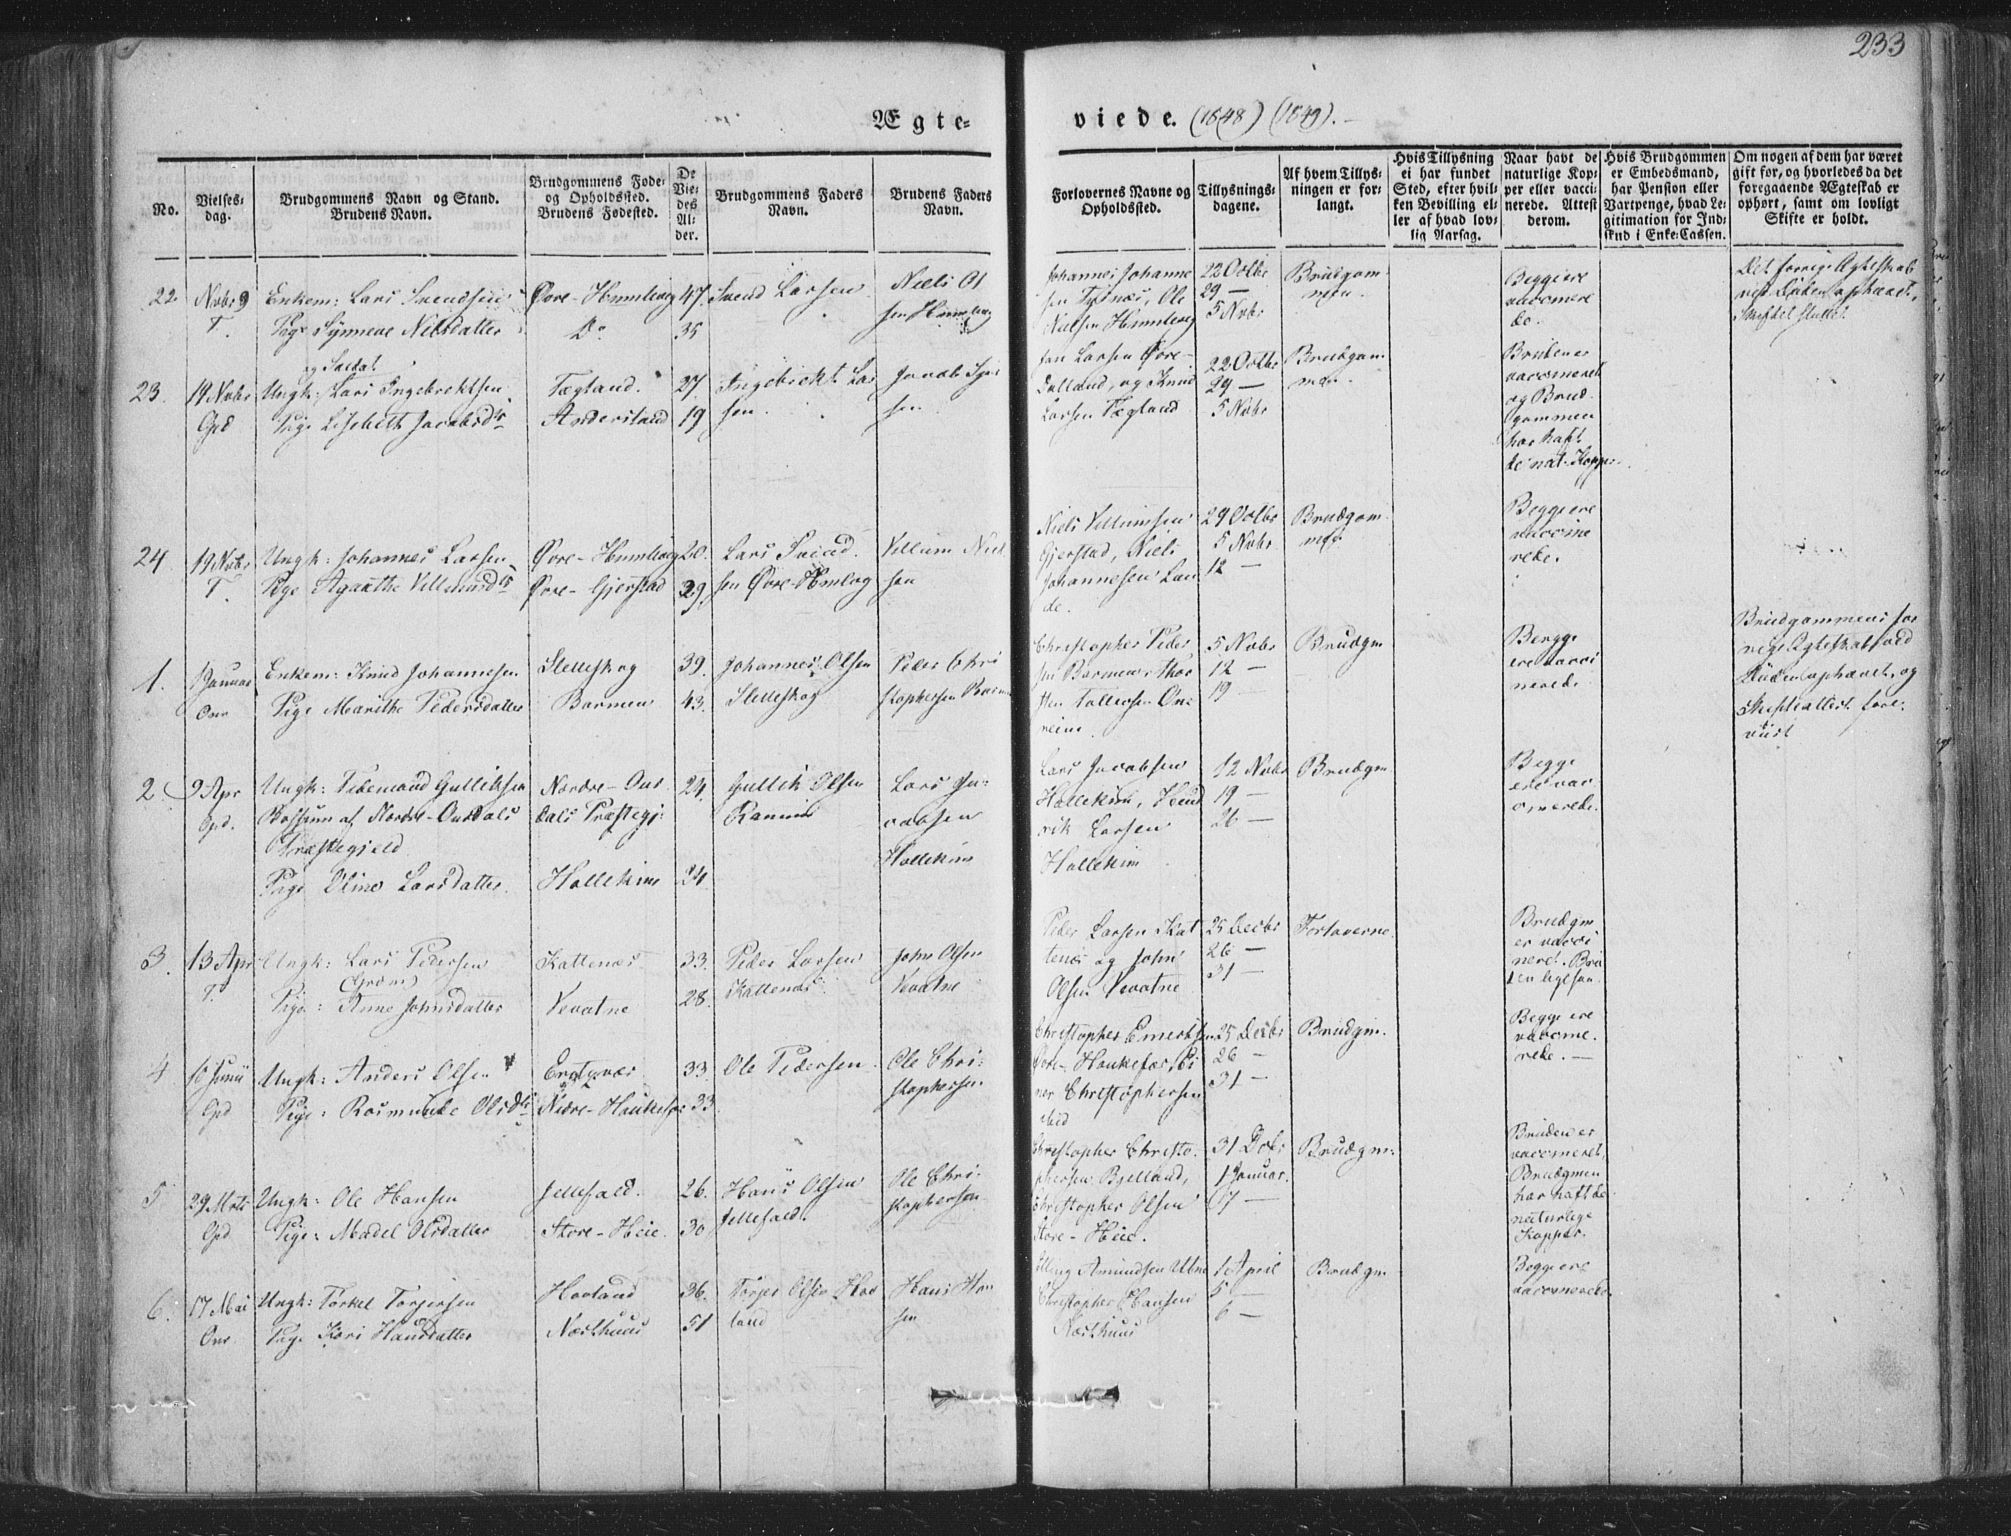 233
Ægte-
viede. (1848) (1849). —
No.
Vielses-
dag.
Brudgommens Navn og Stand.
Brudens Navn.
Brudgommens Føde-
og Opholdssted.
Brudens Fødested.
De
Vie-
des
Al-
der.
Brudgommens Faders
Navn.
Brudens Faders
Navn.
Forlovernes Navne og
Opholdssted.
Tillysnings-
dagene.
Af hvem Tillys-
ningen er for-
langt.
Hvis Tillysning
ei har fundet
Sted, efter hvil-
ken Bevilling el-
ler af hvad lov-
lig Aarsag.
Naar havt de
naturlige Kop-
per eller vacci-
nerede. Attest
derom.
Hvis Brudgommen
er Embedsmand,
har Pension eller
Vartpenge, hvad Le-
gitimation for Ind-
skud i Enke-Cassen.
Om nogen af dem har været
gift før, og hvorledes da det
foregaaende Ægteskab er
ophørt, samt om lovligt
Skifte er holdt.
22. Novbr 9
T.
Enkem: Lars Svendsen
Pige Synneve Nilsdatter
Øvre-Hemlevig
Do
47.
35
Svend Larsen
Niels Ol
sen
Johannes Johanne
sen Tysnæs, Ole
Nielsen Hemlevig
22 Octbr
29 —
5 Novbr
Brudgom
men.
Begge ere
vaccinere
de.
Det forrige Ægteskab
ved Døden ophævet,
Skiftet sluttet
23. 19 Novbr
Gpd
og Soldat
Ungk: Lars Ingebrektsen
Pige Lisebeth Jacobsdtr
Tøgland.
Anderstand
27.
19
Ingebrekt Lar
sen
Jacob
sen
Jan Larsen Øvre-
Dalland, og Knud
Larsen Tøgland
22 Octbr
29 —
5 Novbr
Brudgom
men.
Bruden er
vaccineret
og Brud
gommen
har haft
de nat. Kopper.
24. 19 Novbr
T.
Ungk: Johannes Larsen
Pige Agaathe Villumsdtr
Øvre-Hemlevig
Øvre-Gjerstad
20.
29.
Lars Svend
sen Øvre-Hemlevig
Villum Niel
sen
Niels Villumsen
Gjerstad, Niels
Johannesen Lan
de.
29 Octbr
5 Novbr
12 —
Brudgom
men
Begge ere
vaccine
rede.
1. 1 Januar
Enkem: Knud Johannesen
Pige Marithe Pedersdatter
Sletteskog
Barmen
39.
43.
Johannes Olsen
Sletteskog
Peder Chri
stophersen Barmen
Christopher Peder
sen Barmen, Thor
sten Tollefsen Øve
reim
5 Novbr
12 —
19 —
Brudgm
Begge
ere vacci
nerede
Brudgommens for
rige Ægteskab ved
Døden ophævet, og
Skifteattest fore-
viist
2. 9 Apr
Gpd.
Ungk: Tidemand Gulliksen
af Nordre-Ourdals
Præstegjeld
Pige Oline Larsdatter
Nordre-Our
dals Præstegj:
Hallekim
24.
24
Gullik Olsen
Lars Ja-
cobsen
Hallekim
Lars Jacobsen
Hallekim, Hend
rik Larsen
Hallekim
12 Novbr
19 —
26 —
Brudgm
Begge
ere vac
cinerede.
3. 13 Apr
T.
Ungk: Lars Pedersen
Pige: Anne Johnsdatter
Kattenæs
Vevatne
33.
28.
Peder Larsen
Kattenæs
John Olsen
Vevatne
Peder Larsen Kat
tenæs og John
Olsen Vevatne
25 Decbr
26 —
31 —
Forloverne
Brudgm
er vacci
neret. Bru
den ligesaa.
4 10 Junii
Gpd
Ungk: Anders Olsen
Pige: Rosmunde Olsdtr
Nedre-Haukefær
33.
33.
Ole Pedersen
Ole Chri-
stophersen
Christopher Ernestsen
Øvre-Haukefær, Ei
ner Christophersen
25 Decbr
26 —
31 —
Brudgm.
Begge ere
vaccine.
rede. —
5 29 Mrts
Gpd
Ungk: Ole Hansen
Pige: Madel Olsdatter
Jettefald.
Store-Heie.
26.
30
Hans Olsen
Jettefald.
Ole Chri-
stophersen
Christopher Christo-
phersen Bjelland,
Christopher Olsen
Store-Heie.
31 Decbr
1 Januar.
Brudgm:
Bruden er
vaccineret
Brudgmen
har haft de
naturlige
Kopper.
6. 17 Mai
Ungk: Torkel Torgersen
Pige Kari Hansdatter
Hovland
Næsthuus
36.
51
Torger Olsen Hov
land
Hans Han
sen
Elling Amundsen
Christopher Hansen
Næsthuus
1 April
5 —
6 —
Brudgm
Begge ere
vaccinerede.